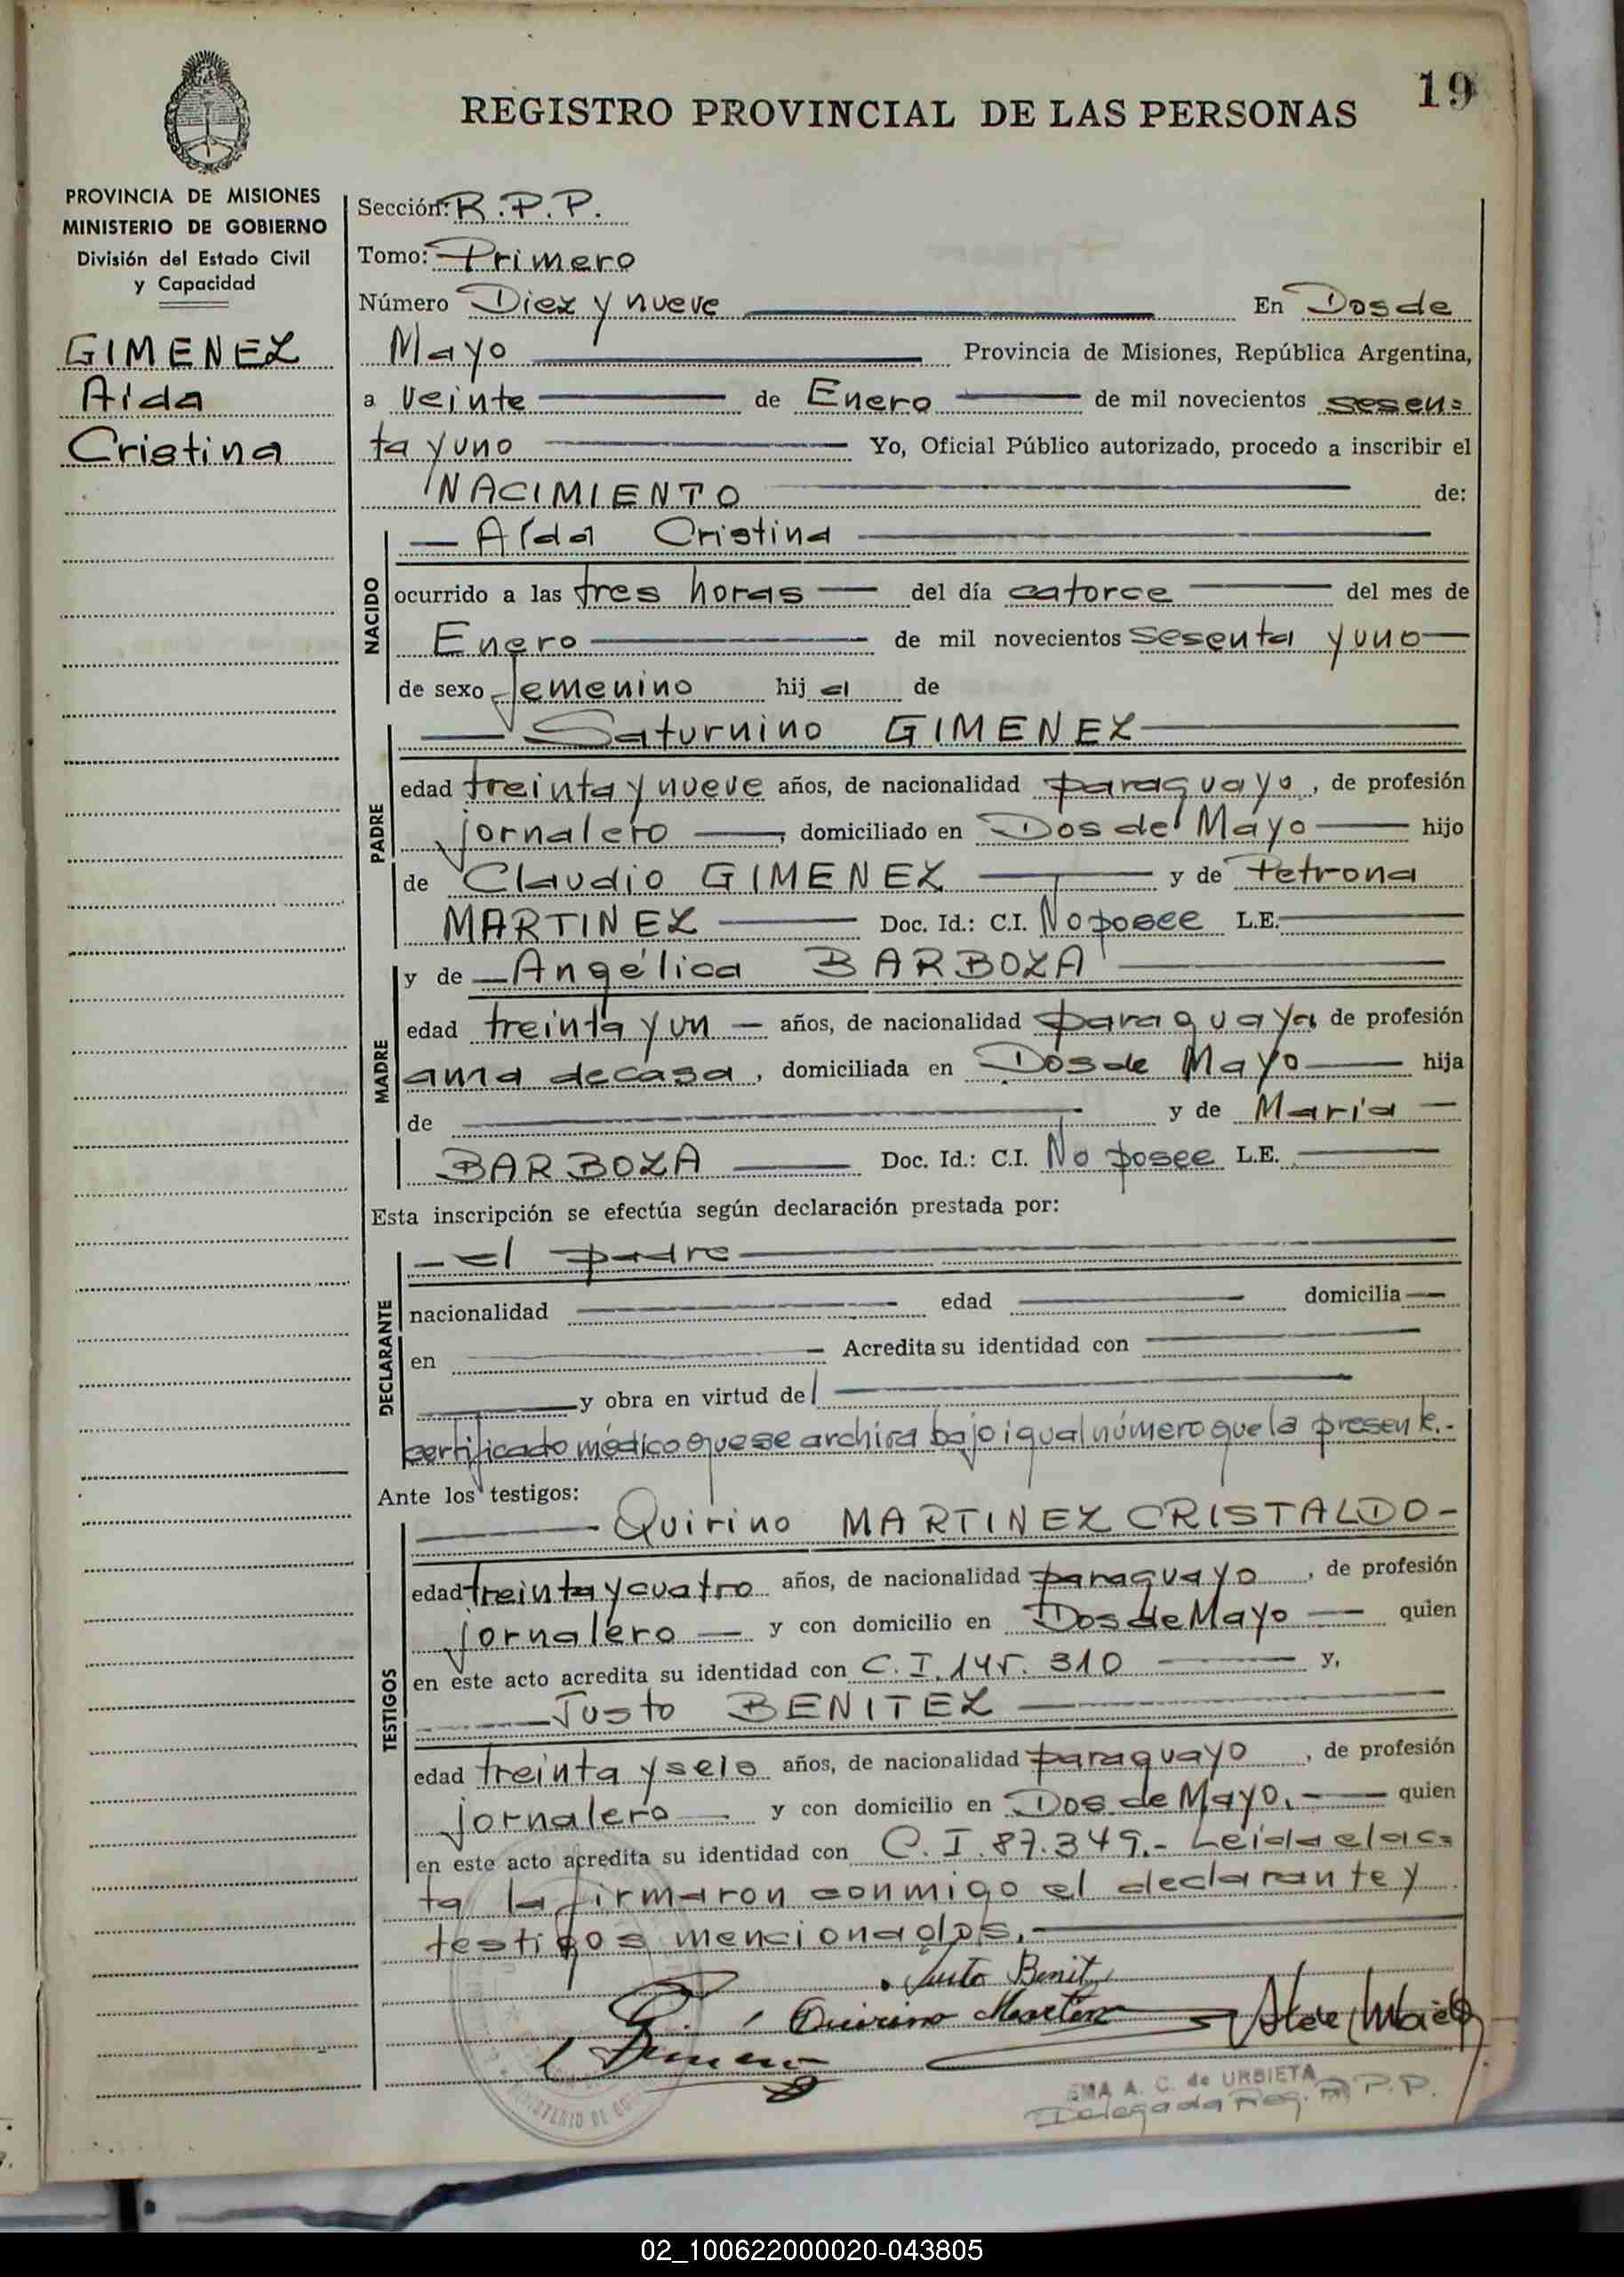 19
REGISTRO PROVINCIAL DE LAS PERSONAS
PROVINCIA DE MISIONES
MINISTERIO DE GOBIERNO
División del Estado Civil
y Capacidad
GIMENEZ
Aída
Cristina
Sección: R.P.P.
Tomo: Primero
Número Diez y nueve En Dos de
Mayo Provincia de Misiones, República Argentina,
a veinte de Enero de mil novecientos sesen=
ta y uno Yo, Oficial Público autorizado, procedo a inscribir el
NACIMIENTO de:
NACIDO
Aída Cristina
ocurrido a las tres horas del día catorce del mes de
Enero de mil novecientos sesenta y uno
de sexo femenino hija de
PADRE
Saturnino GIMENEZ
edad treinta y nueve años, de nacionalidad paraguayo, de profesión
jornalero, domiciliado en Dos de Mayo hijo
de Claudio GIMENEZ y de Petrona
MARTINEZ Doc. Id.: C.I. No posee L.E.
MADRE
y de Angélica BARBOZA
edad treinta y un años, de nacionalidad paraguaya de profesión
ama de casa, domiciliada en Dos de Mayo hija
de y de María
BARBOZA Doc. Id.: C.I. No posee L.E.
Esta inscripción se efectúa según declaración prestada por:
DECLARANTE
el padre
nacionalidad edad domicilia
en Acredita su identidad con
y obra en virtud del
certificado médico que se archiva bajo igual número que la presente.-
Ante los testigos:
TESTIGOS
Quirino MARTINEZ CRISTALDO-
edad treinta y cuatro años, de nacionalidad paraguayo, de profesión
jornalero y con domicilio en Dos de Mayo quien
en este acto acredita su identidad con C.I. 145.310 y,
Justo BENITEZ
edad treinta y seis años, de nacionalidad paraguayo, de profesión
jornalero y con domicilio en Dos de Mayo. quien
en este acto acredita su identidad con C.I. 87.349.- Leida el ac=
ta la firmaron conmigo el declarante y
testigos mencionados.
Justo Benit
Quirino Martinez
EMA A. C. de URBIETA
Delegada Reg. P.P.
02_100622000020-043805